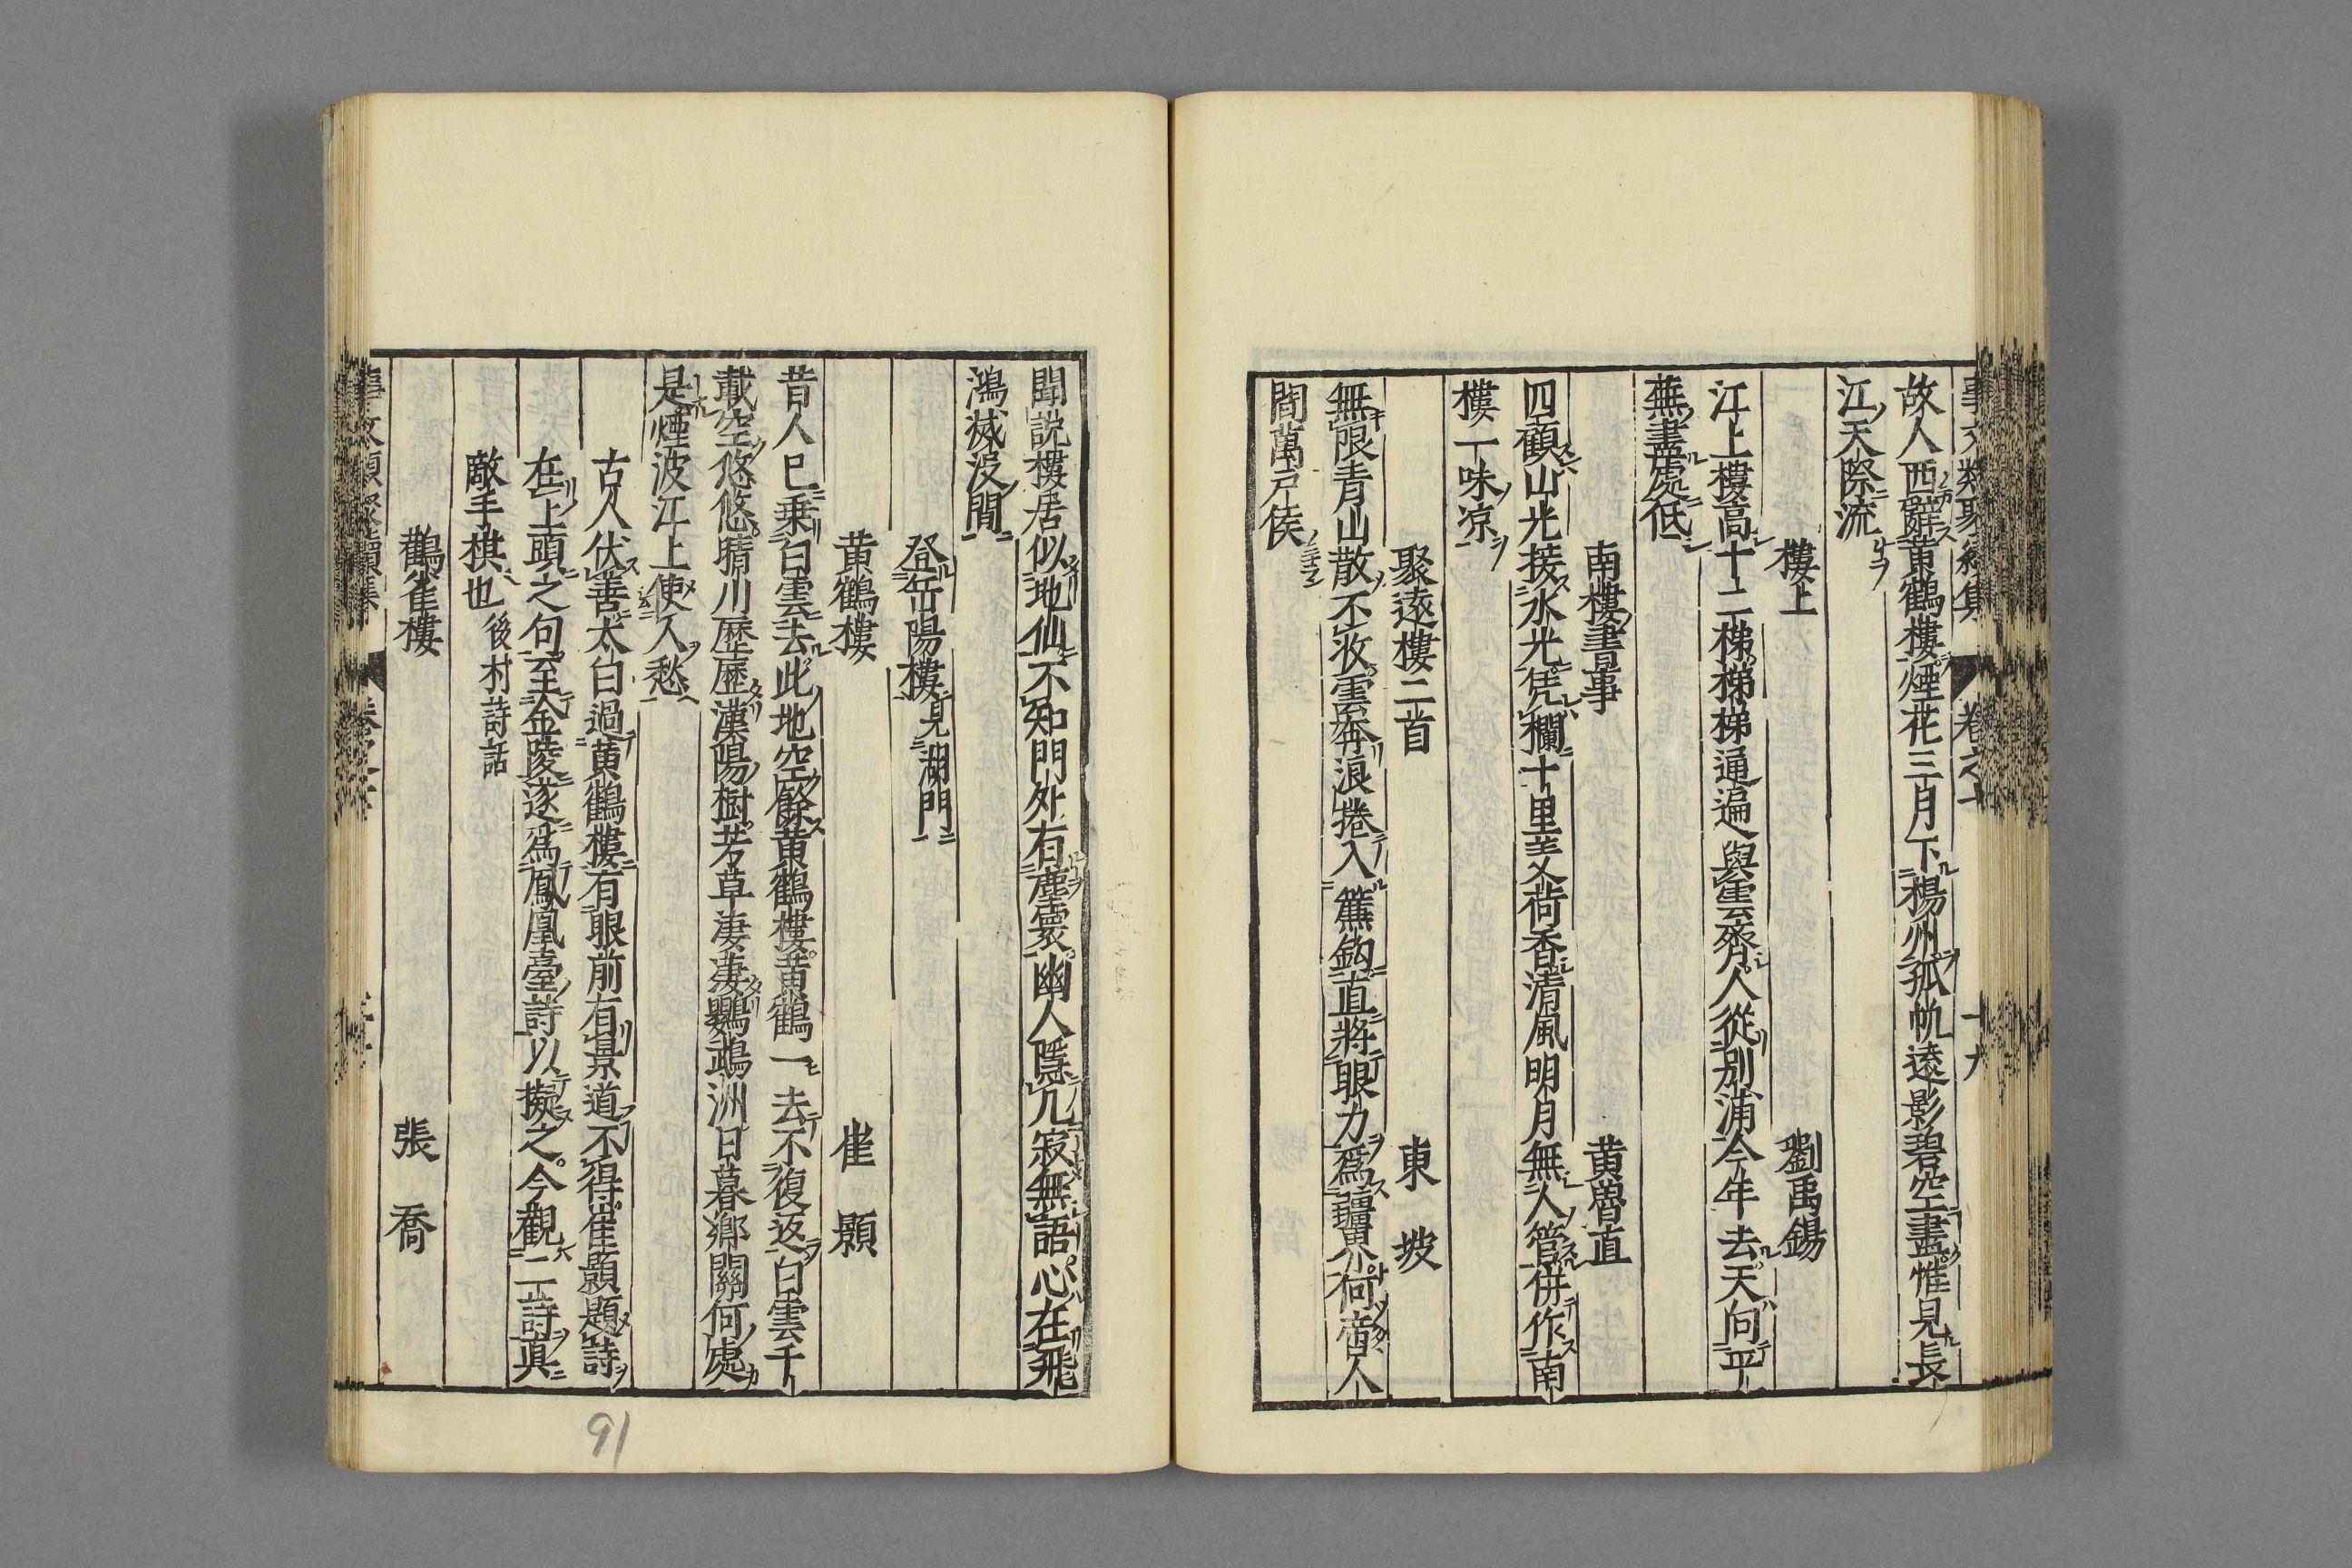 故人西辭黄鶴樓煙花三月下楊州孤帆遠影碧空盡惟見長
江天際流
樓上 劉禹錫
江上樓高十二梯梯梯通遍與雲齊人從別浦今年去天向平
蕪盡處低
南樓書事 黄魯直
四顧山光接水光凭欄十里芰荷香清風明月無人管併作南
樓一味凉
聚遠樓二首 東坡
無限青山散不收雲奔浪捲入簾鈎直將眼力爲疆界何啻人
間萬户侯
聞説樓居似地仙不知門外有塵寰幽人隱几寂無語心在飛
鴻滅没間
登岳陽樓見湖門
黄鶴樓 崔顥
昔人已乗白雲去此地空餘黄鶴樓黄鶴一去不復返白雲千
載空悠悠晴川歴歴漢陽樹芳草淒淒鸚鵡洲日暮鄉關何處
是煙波江上使人愁
古人伏善太白過黄鶴樓有眼前有景道不得崔顥題詩
在上頭之句至金陵遂爲鳳凰臺詩以擬之今觀二詩眞
敵手棋也 後村詩話
鸛雀樓 張喬
91